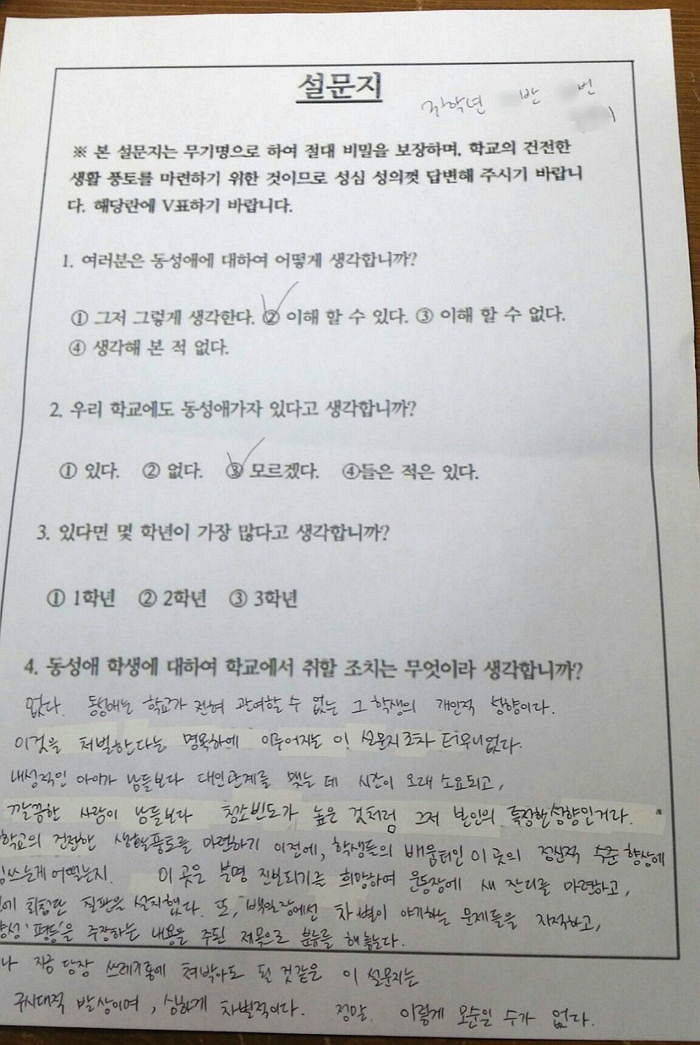 설문지
학년 반 번
※ 본 설문지는 무기명으로 하여 절대 비밀을 보장하며, 학교의 건전한
생활 풍토를 마련하기 위한 것이므로 성심 성의껏 답변해 주시기 바랍니
다. 해당란에 V표하기 바랍니다.
1. 여러분은 동성애에 대하여 어떻게 생각합니까?
① 그저 그렇게 생각한다. ② 이해 할 수 있다. ③ 이해 할 수 없다.
④ 생각해 본 적 없다.
2. 우리 학교에도 동성애가자 있다고 생각합니까?
① 있다. ② 없다. ③ 모르겠다. ④들은 적은 있다.
3. 있다면 몇 학년이 가장 많다고 생각합니까?
① 1학년 ② 2학년 ③ 3학년
4. 동성애 학생에 대하여 학교에서 취할 조치는 무엇이라 생각합니까?
없다. 동성애는 학교가 전혀 관여할 수 없는 그 학생의 개인적 성향이다.
이것을 처벌한다는 명목하에 이루어지는 이 설문지조차 터무니없다.
내성적인 아이가 남들보다 대인관계를 맺는 데 시간이 오래 소요되고,
깔끔한 사람이 남들보다 청소빈도가 높은 것처럼 그저 본인의 특정한 성향인거라.
학교의 건전한 생활풍토를 마련하기 이전에, 학생들의 배움터인 이 곳의 정신적 수준 향상에
힘쓰는게 어떨는지. 이 곳은 분명 진보되기를 희망하여 운동장에 새 잔디를 마련하고,
회전판 칠판을 설치했다. 또, 백일장에선 차별이 야기하는 문제들을 지적하고,
양성 '평등'을 주장하는 내용을 주된 제목으로 분류를 해놓는다.
지금 당장 쓰레기통에 쳐박아도 될 것같은 이 설문지는
구시대적 발상이며, 심하게 차별적이다. 정말. 이렇게 모순일 수가 없다.